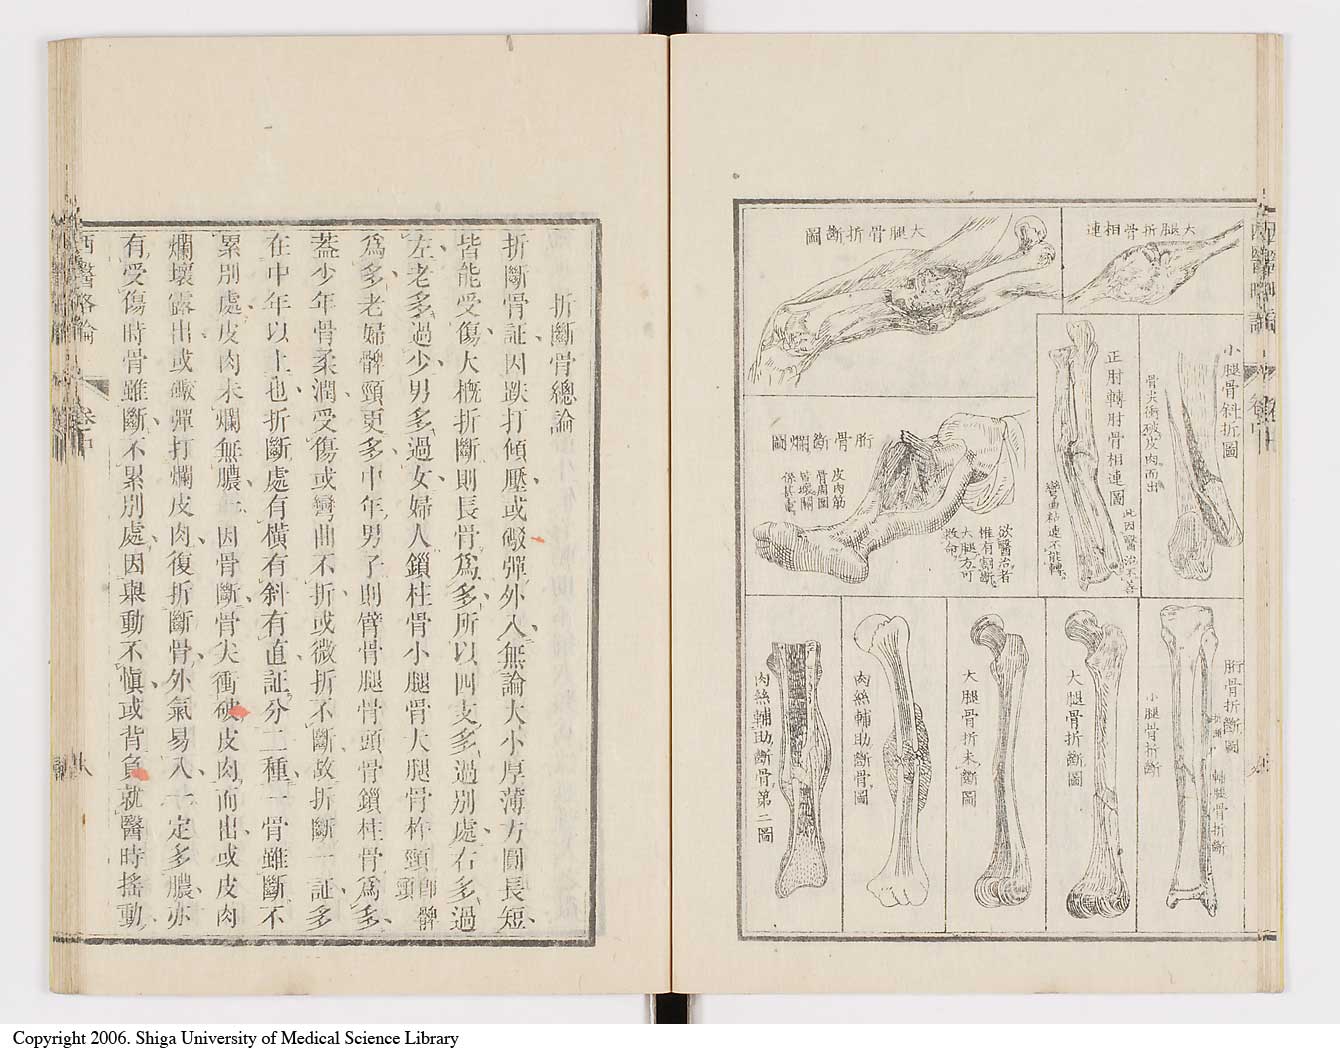 西醫略論
大腿折骨相連
大腿骨折斷圖
小腿骨斜折圖
骨尖衝破皮肉而出
正肘轉肘骨相連圖
此因醫治不善
彎曲粘連不能轉
胻骨斷爛圖
皮肉筋
骨周圍
欲醫治者
惟有割斷
大腿方可
救命
胻骨折斷圖
輔腿骨折斷
小腿骨折斷
大腿骨折斷圖
大腿骨折未斷圖
肉絲輔助斷骨圖
肉絲輔助斷骨第二圖
折斷骨總論
折斷骨証、因跌打傾壓、或礮彈外入、無論大小厚薄方圓長短、
皆能受傷、大概折斷則長骨爲多、所以四支多過別處、右多過
左、老多過少、男多過女、婦人鎖柱骨小腿骨大腿骨杵頸卽髀頸
爲多、老婦髀頸更多、中年男子則臂骨腿骨頭骨鎖柱骨爲多、
葢少年骨柔潤、受傷或彎曲不折、或微折不斷、故折斷一証、多
在中年以上也、折斷處有橫有斜有直、証分二種、一骨雖斷不
累別處、皮肉未爛無膿、一因骨斷骨尖衝破皮肉而出、或皮肉
爛壞露出、或礮彈打爛皮肉、復折斷骨、外氣易入、一定多膿、亦
有受傷時骨雖斷、不累別處、因舉動不愼、或背負就醫時搖動、
西醫略論
卷中